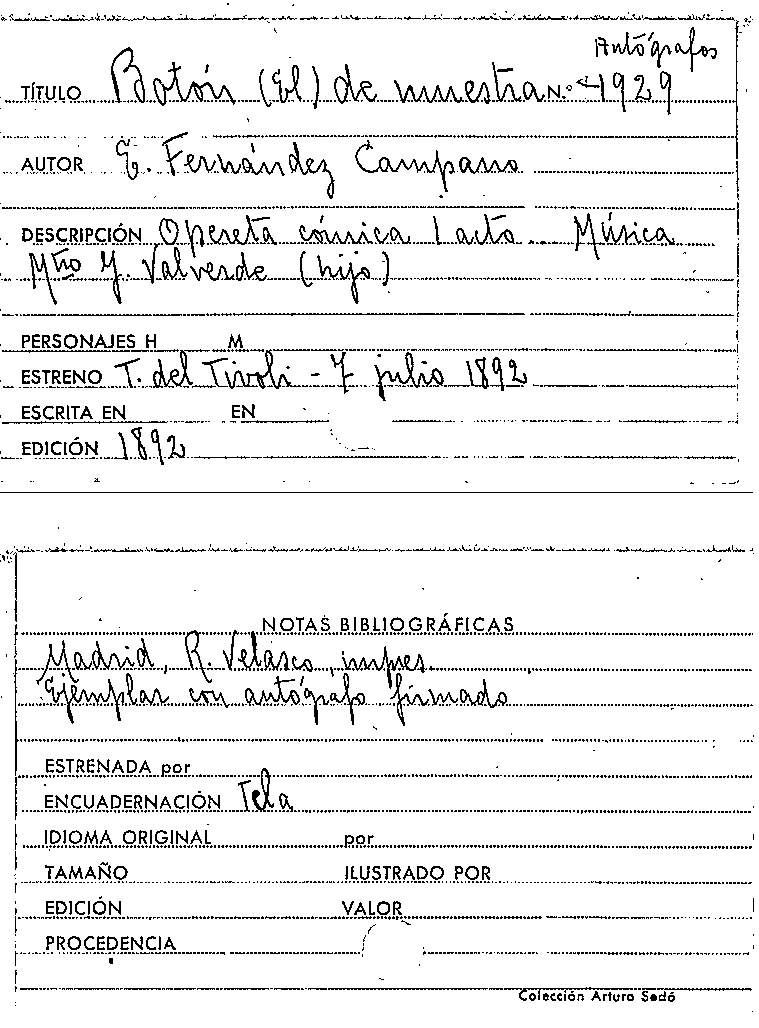 Autógrafos
TÍTULO Botón (El) de muestra N.º 1929
AUTOR E. Fernández Campano
DESCRIPCIÓN Opereta cómica 1 acto Música
Mtro J. Valverde (hijo)
PERSONAJES H M
ESTRENO T. del Tívoli - 7 julio 1892
ESCRITA EN EN
EDICIÓN 1892
NOTAS BIBLIOGRÁFICAS
Madrid, R. Velasco, impres.
Ejemplar con autógrafo firmado
ESTRENADA por
ENCUADERNACIÓN Tela
IDIOMA ORIGINAL por
TAMAÑO ILUSTRADO POR
EDICIÓN VALOR
PROCEDENCIA
Colección Arturo Sedó